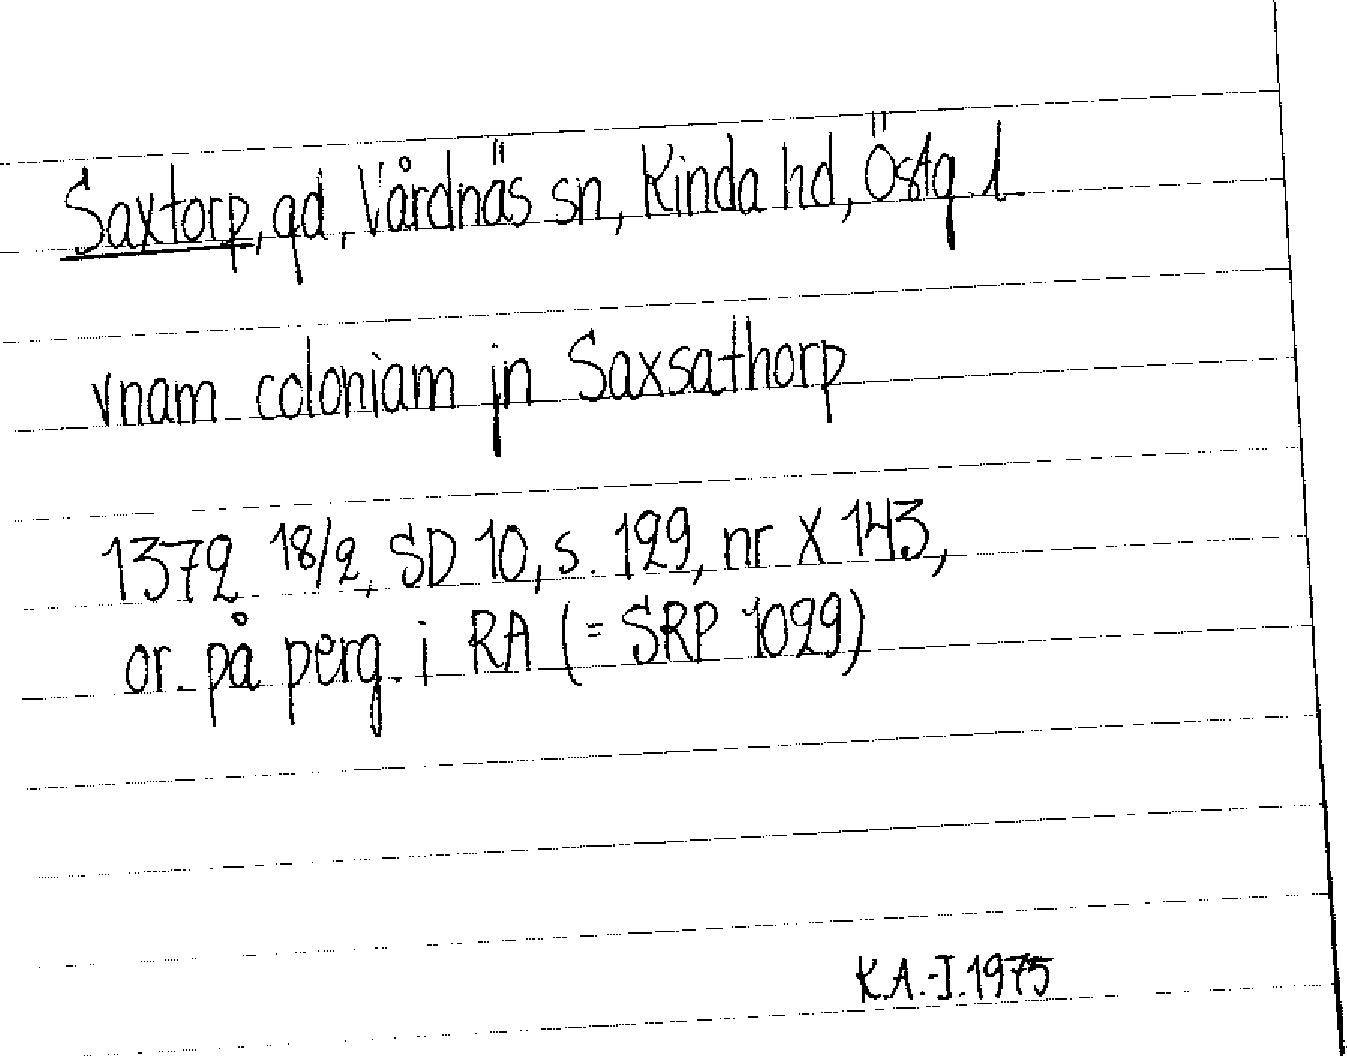 Saxtorp, gd, Vårdnäs sn, Kinda hd, Östg l
vnam coloniam jn Saxsathorp
1372 18/2, SD 10, s. 129, nr X 143,
or. på perg. i RA (= SRP 1029)
K.A.-J. 1975